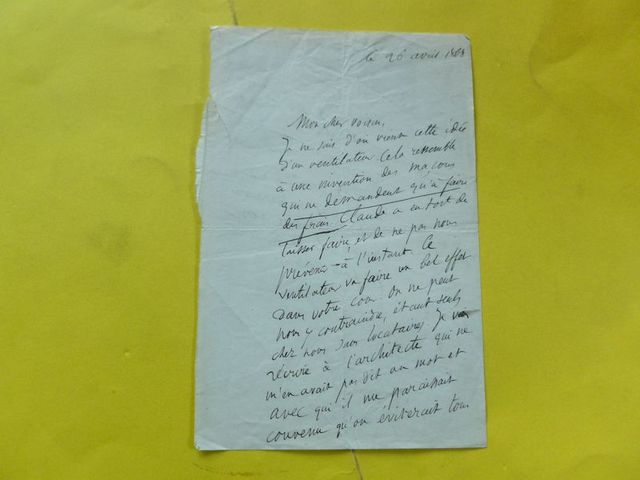 le 26 avril 1868
Mon cher voisin,
Je ne sais d'où vient cette idée
d'un ventilateur. Cela ressemble
à une invention des maçons
qui ne demandent qu'à faire
des frais. Claude a eu tort de
laisser faire, et de ne pas nous
prévenir à l'instant. Ce
ventilateur va faire un bel effet
dans votre cour. On ne peut
nous y contraindre, étant seuls
chez nous sans locataires. Je vais
écrire à l'architecte qui ne
m'en avait pas dit un mot et
avec qui il me paraissait
convenu qu'on éviterait tous